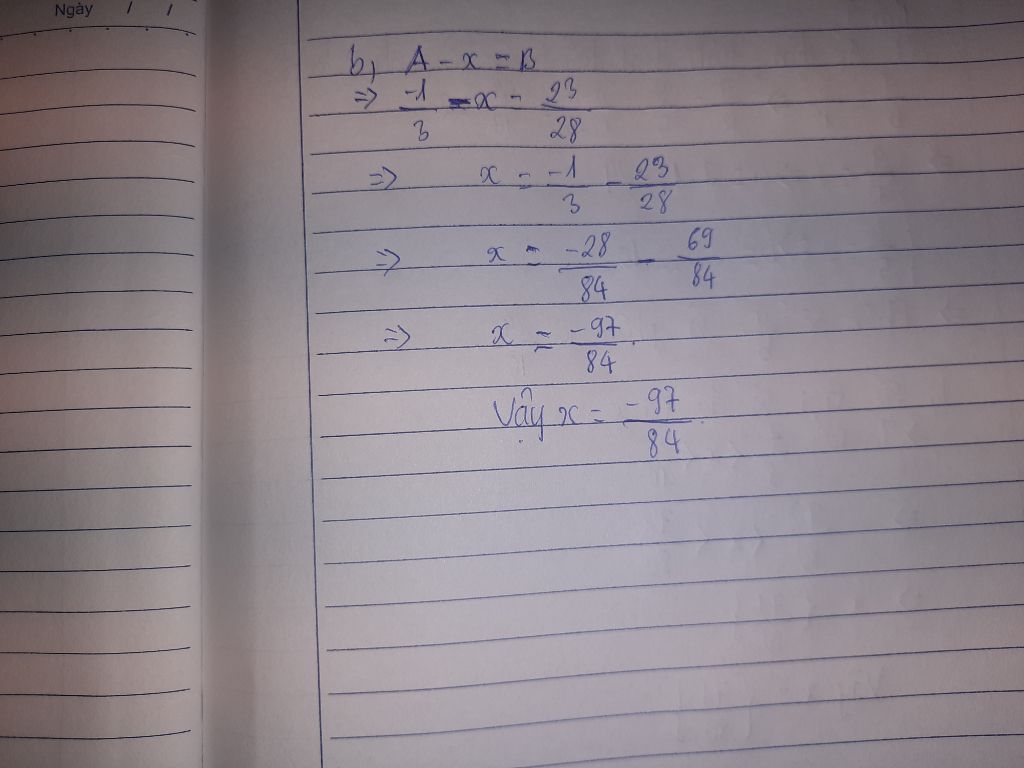 Ngày / /
b, A - x = B
=> -1/3 - x = 23/28
=> x = -1/3 - 23/28
=> x = -28/84 - 69/84
=> x = -97/84.
Vậy x = -97/84.